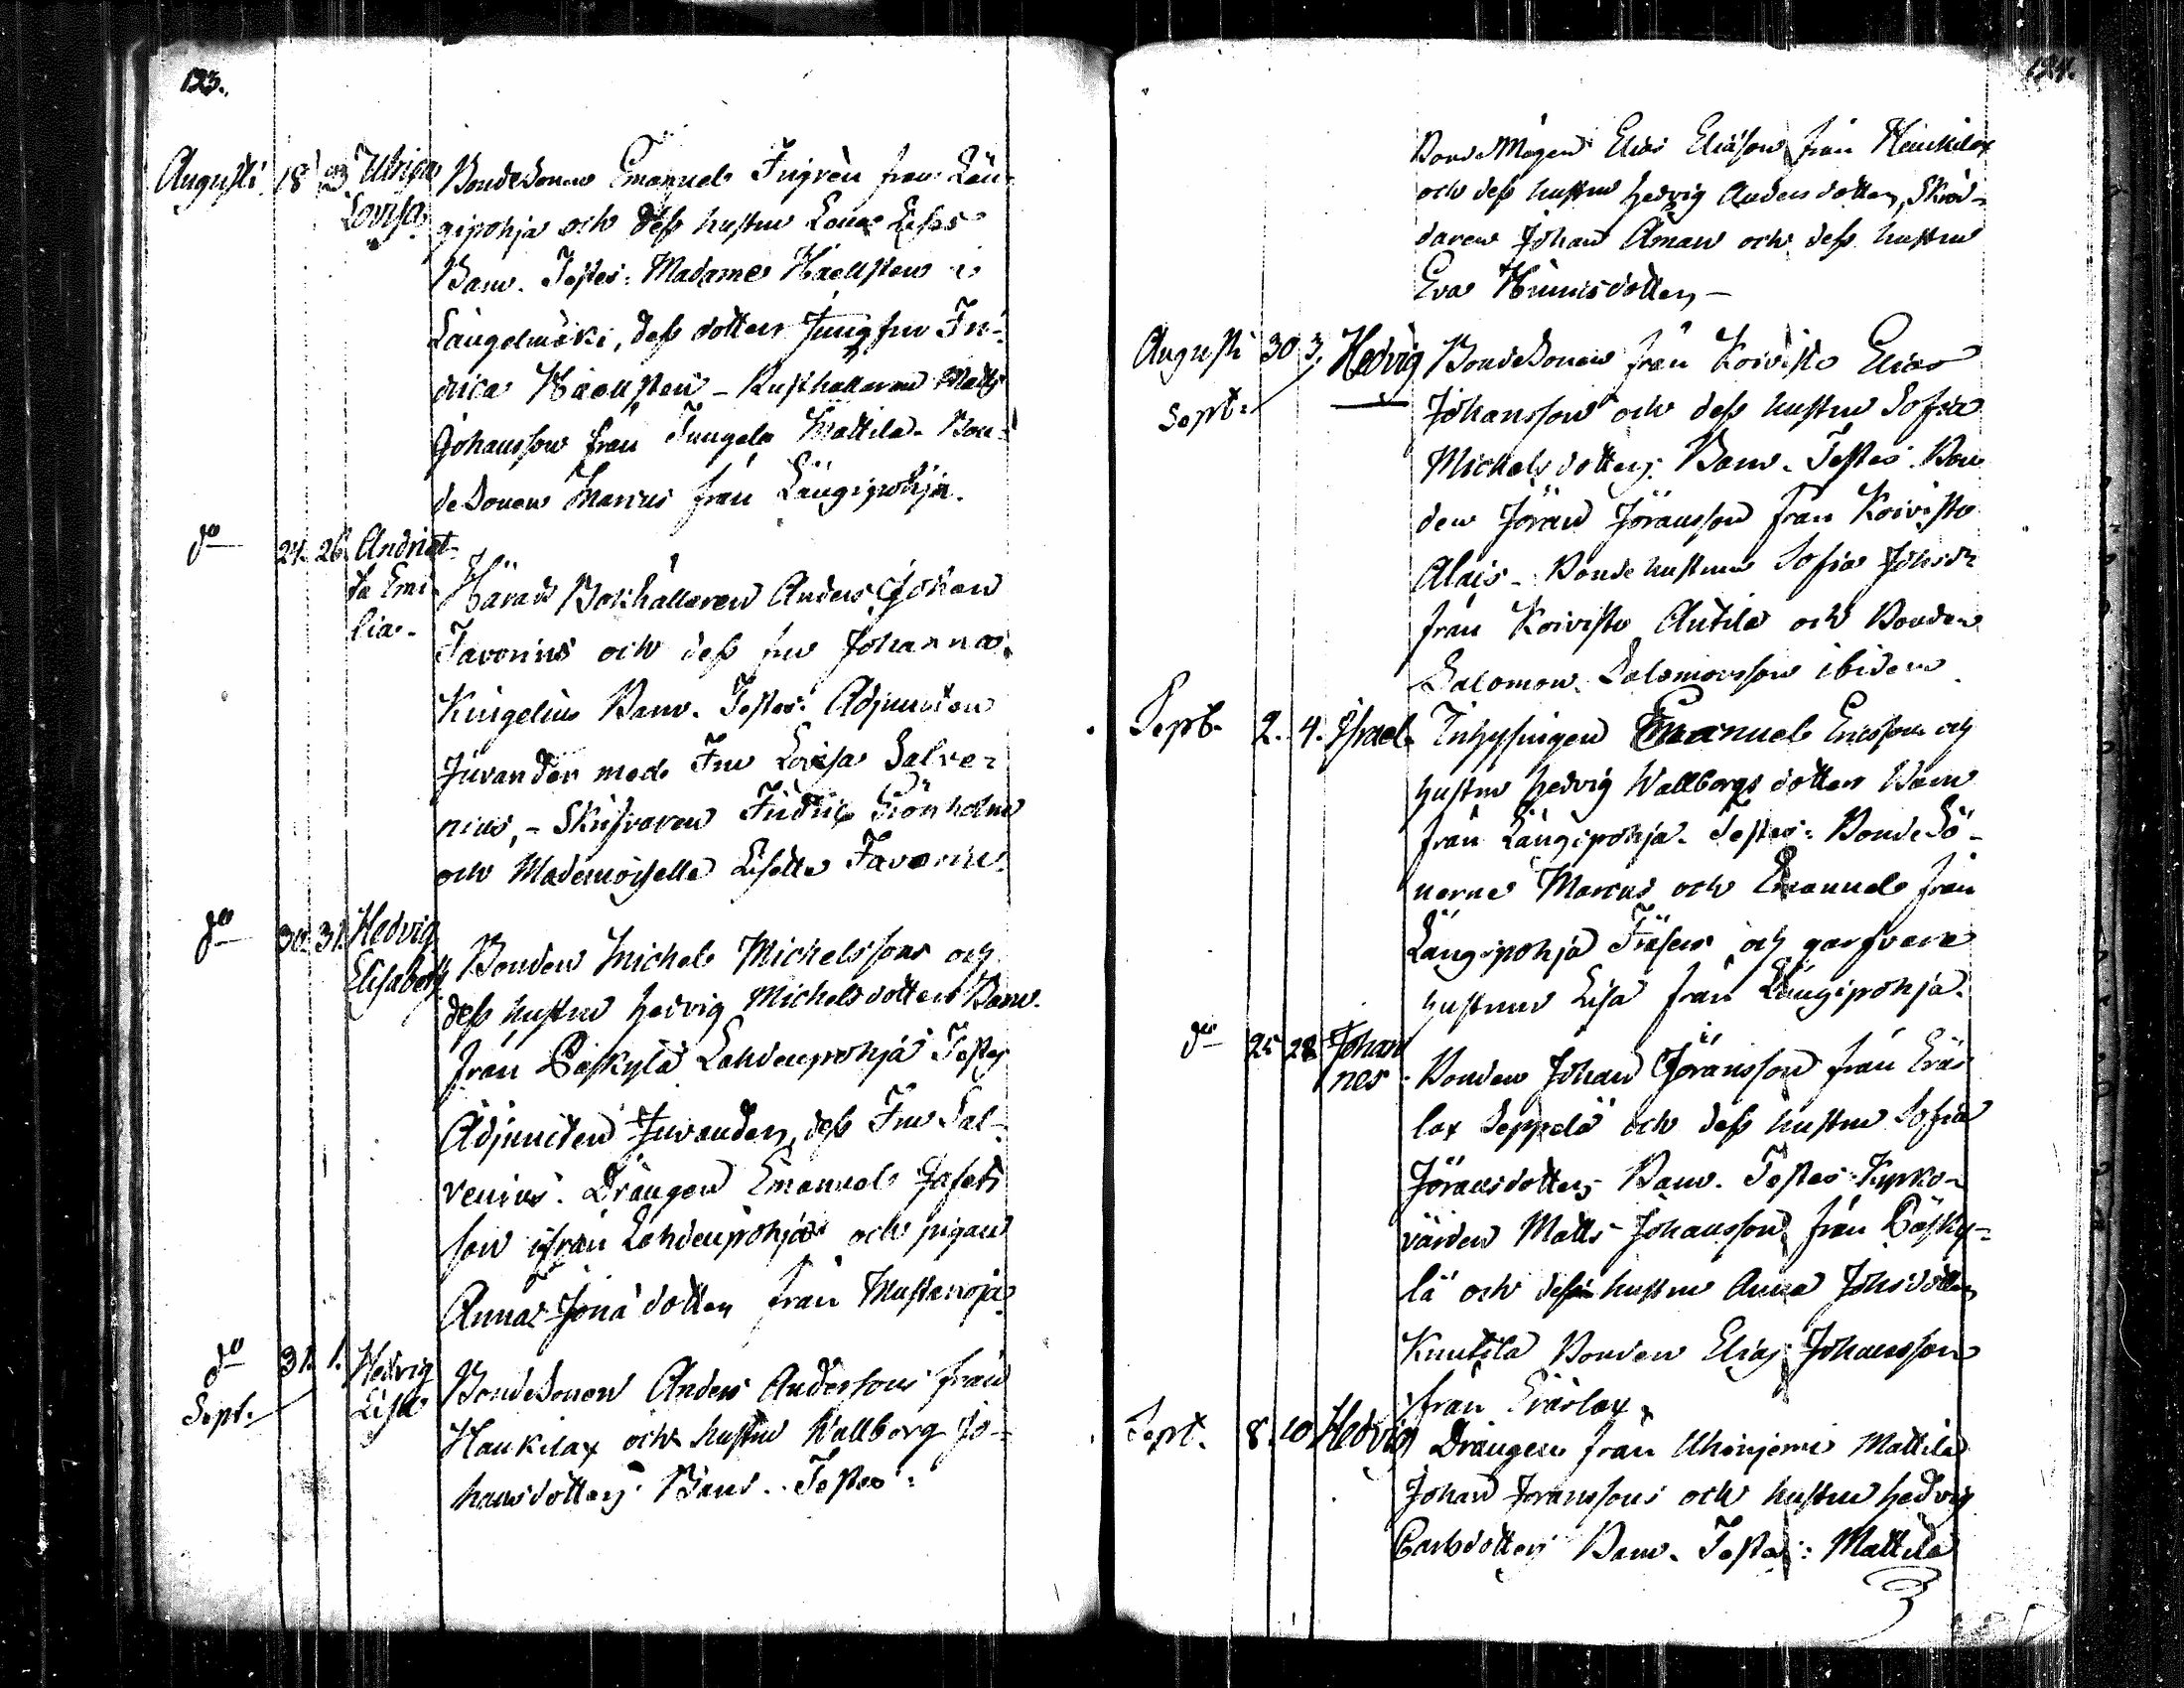 123.
Augusti 18 23 Ulrica Bondesonen Emanuel Fngrén från Län-
Lovisa gipohja och deß hustru Lena Lisas
Barn. Testes: Madame Häellsten i
Längelmäki, deß dotter Jungfru Fri-
drica Häellsten - Rusthållaren Matts
Johansson från Mattila. Bon-
desonen Marcus från Längipohja.
do 24. 26. Andriet-
ta Emi- Härads Bokhållaren Anders Johan
lia. Favorinus och deß fru Johanna
Kingelius Barn. Testes: Adjuncten
Juvander med Fru Lovisa Salve-
nius, - Skrifvaren Fridric Grönholm
och Mademoiselle Lisette Favorin.
do 30. 31. Hedvig
Elisabeth Bonden Michel Michelssons och
deß hustru Hedvig Michelsdotters Barn
från Päskylä Lahdenpohja Testes
Adjuncten Juvander, deß Fru Sal-
venius. Drängen Emanuel Jafets
son ifrån Lahdenpohja och pigan
Anna Jona dotter från Mustanoja
do 31. 1. Hedvig Bondesonen Anders Anderssons från
Sept. Lisa Haukilax och hustru Wallborg Jo-
hansdotters Barn. Testes:
124.
Bonde Mågen Elias Eliasson från Haukilax
och deß hustru Hedvig Andersdotter, Skräd-
daren Johan Åman och deß hustru
Eva Henricsdotter -
Augusti 30 3. Hedvig Bondesonen från Koivisto Elias
Sept: Johansson och deß hustru Sofia
Michelsdotters Barn. Testes. Bon
den Jöran Jöransson från Koivisto
Alais - Bonde hustrun Sofia Johsdr
från Koivisto Antila och Bonden
Salomon Salomonsson ibidem
Sept. 2. 4. Israel Inhysingen Emanuel Ericsson och
hustru Hedvig Wallborgs dotters Barn
från Längipohja. Testes: Bonde Sö-
nerne Marcus och Emanuel från
Längipohja och garfvare
hustrun Lisa från Längipohja.
do 25 28 Johan
nes Bonden Johan Jöransson från Eräs
lax Seppälä och deß hustru Sofia
Jöransdotters Barn. Testes: Kyrko-
värden Matts Johansson från Päsky-
lä och deß hustru Anna Johsdotter
Knutila Bonden Elias Johansson
från Eräslax
Sept. 8. 10 Hedvig Drängen från Uhinjerwi Mattila
Johan Joranssons och hustru Hedvig
Carlsdotters Barn. Testes: Mattila